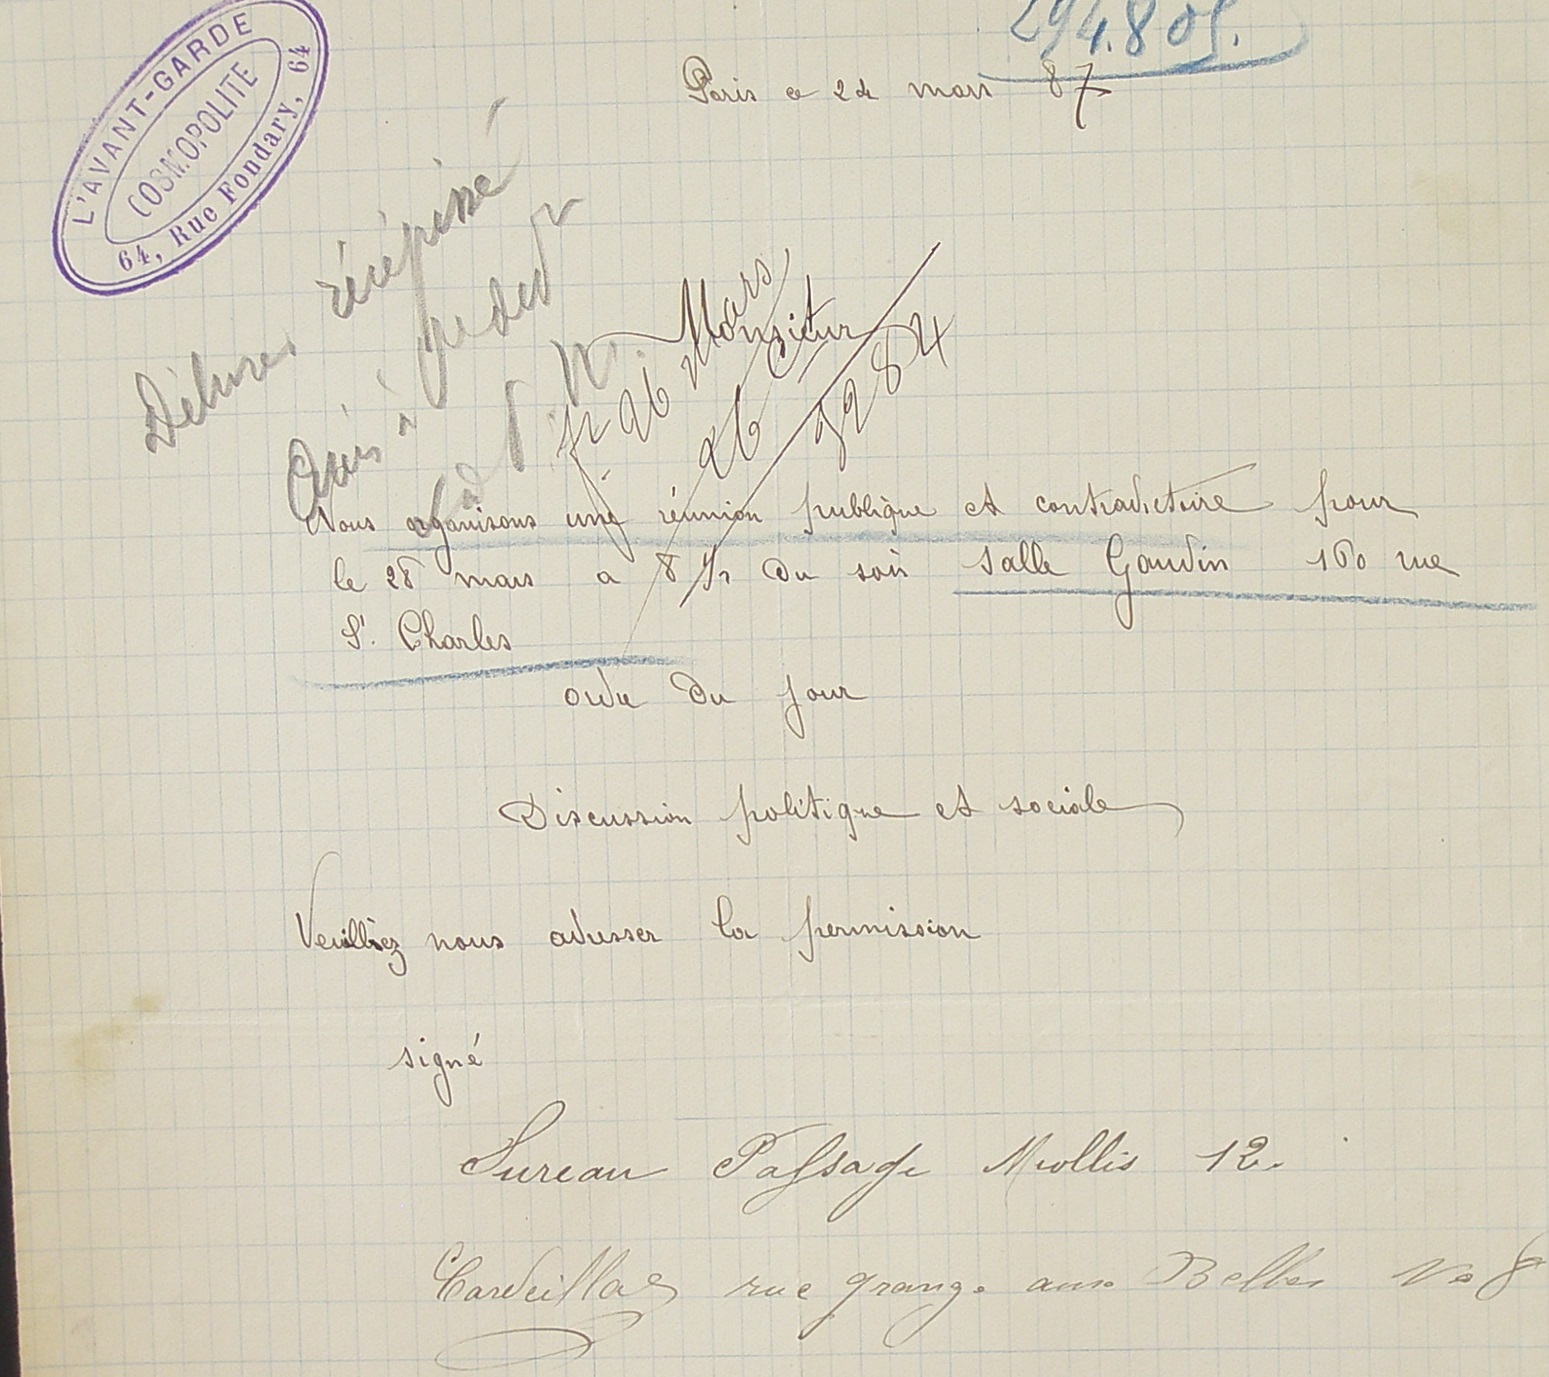 294.805.
L'AVANT-GARDE
COSMOPOLITE
64, Rue Fondary, 64
Paris ce 24 mars 87
Délivrer récépissé
Avis à
26 Mars
26
3284
Monsieur
Nous organisons une réunion publique et contradictoire pour
le 28 mars a 8 ½ du soir salle Gaudin 160 rue
St. Charles
ordre du jour
Discussion politique et sociale
Veuilliez nous adresser la permission
signé
Sureau Passage Miollis 12.
Cardeillac rue grange aux Belles No 8